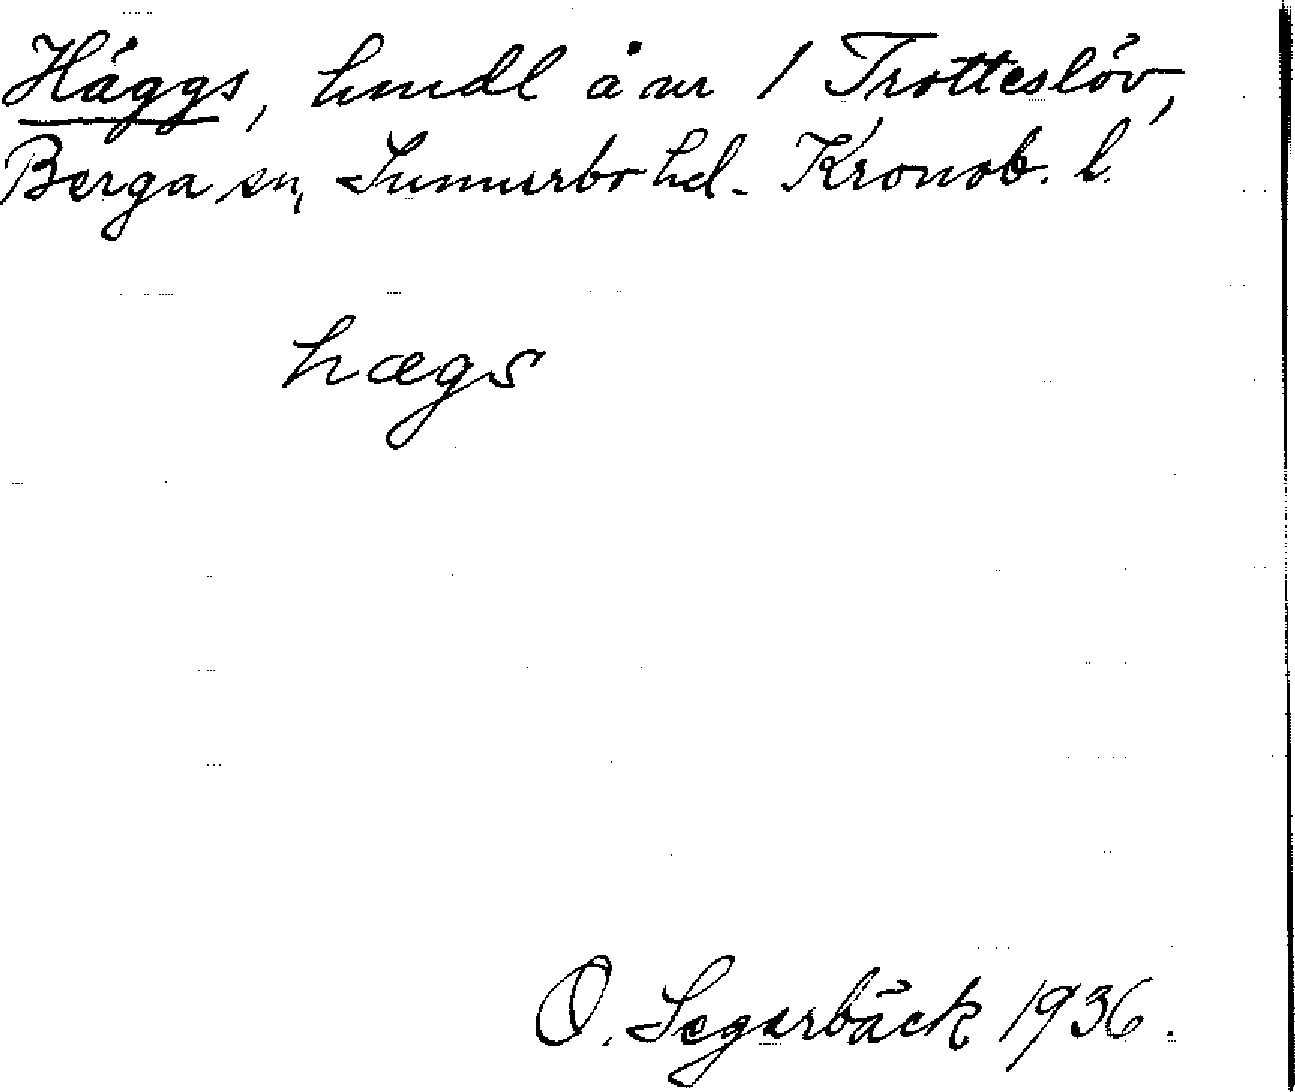 Häggs, hmdl å nr 1 Trotteslöv,
Berga sn, Sunnerbo hd. Kronob. l.
hægs
O. Segerbäck 1936.